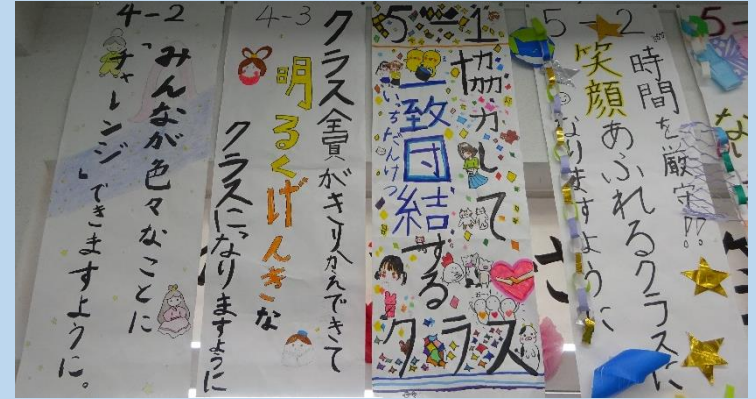 4-2
みんなが色々なことに
「チャレンジ」できますように。
4-3
クラス全員がきりかえできて
明るくげんきな
クラスになりますように
5-1
協力して
一致団結する
いっちだんけつ
クラス
5-2
時間を厳守!!
笑顔あふれるクラスに
なりますように
5-